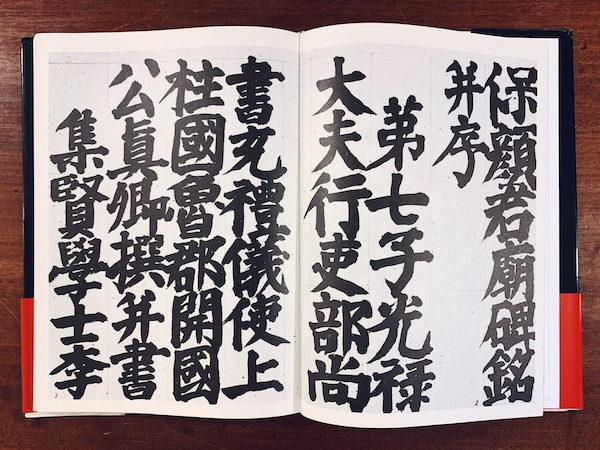 保顔君廟碑銘
并序
第七子光禄
大夫行吏部尚
2
書充禮儀使上
柱國魯郡開國
公眞卿撰并書
集賢學士李
3